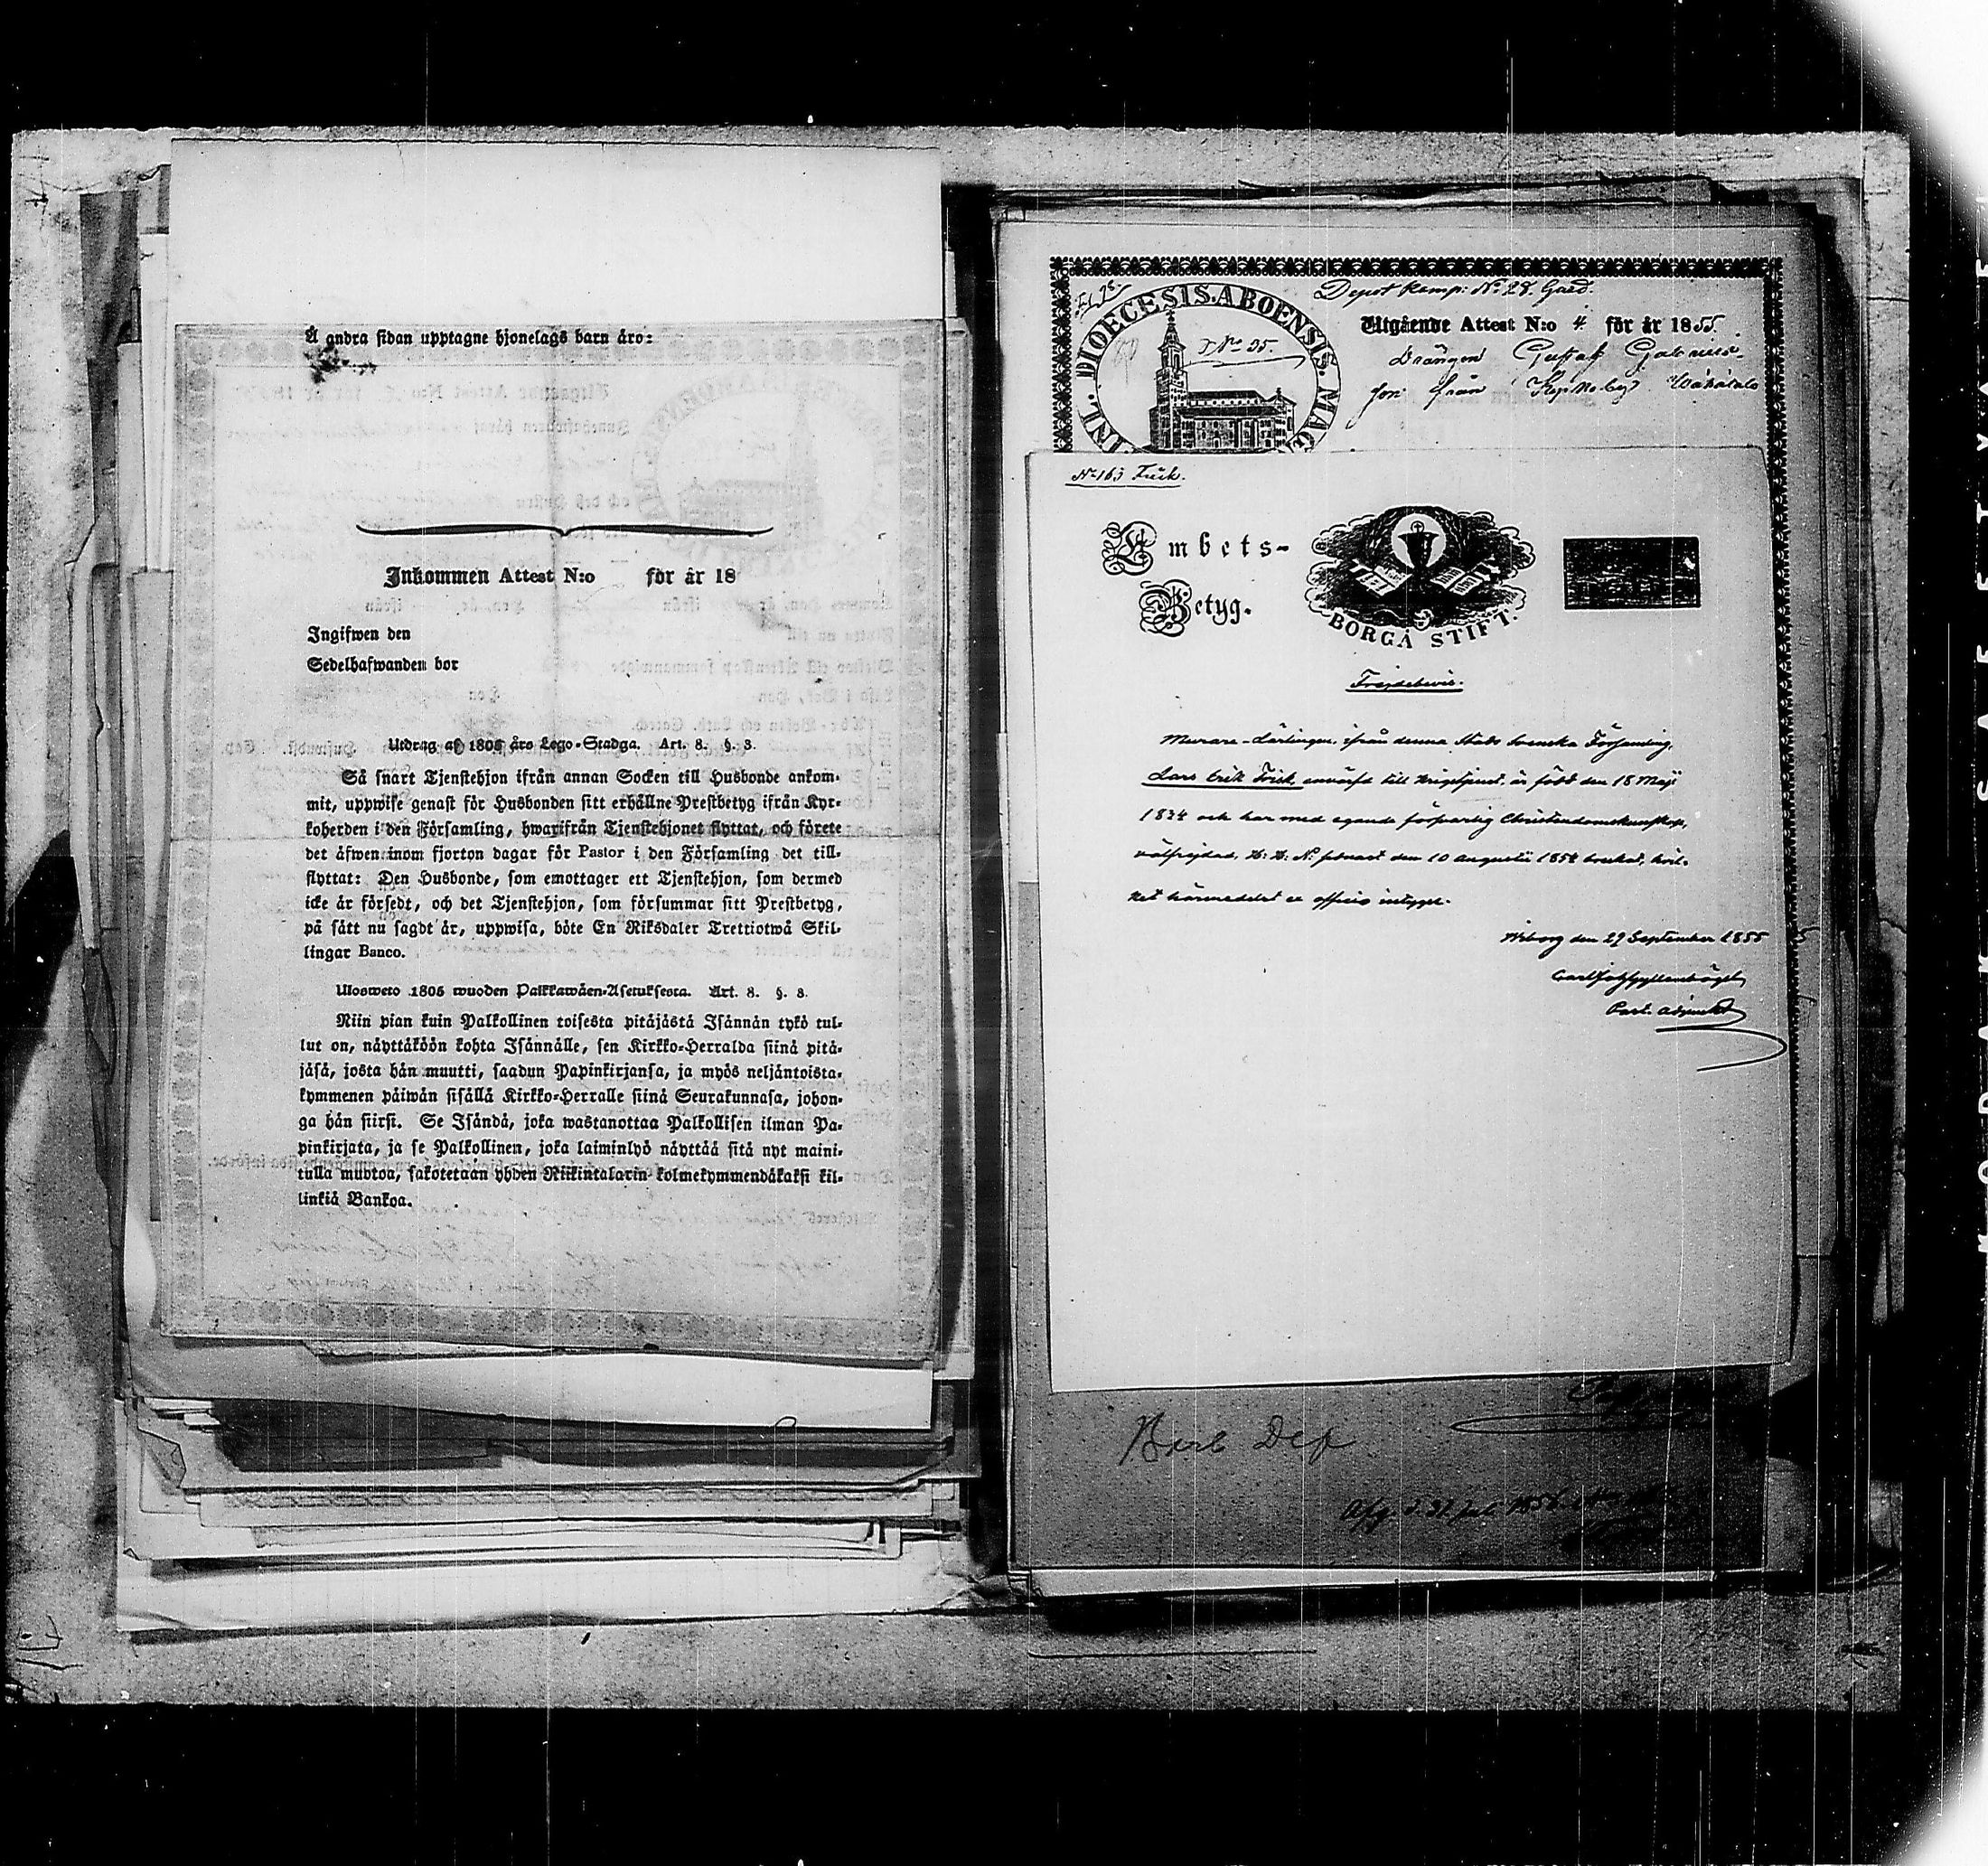 Å andra sidan upptagne hjonelags barn äro:
Inkommen Attest N:o för år 18
Ingifwen den
Sedelhafwanden bor
Utdrag af 1805 års Lego-Stadga. Art. 8. §. 3.
Så snart Tjenstehjon ifrån annan Socken till Husbonde ankom-
mit, uppwise genast för Husbonden sitt erhållne Prestbetyg ifrån Kyr-
koherden i den Församling, hwarifrån Tjenstehjonet flyttat, och förete
det äfwen inom fjorton dagar för Pastor i den Församling det till-
flyttat: Den Husbonde, som emottager ett Tjenstehjon, som dermed
icke är försedt, och det Tjenstehjon, som försummar sitt Prestbetyg,
på sätt nu sagdt är, uppwisa, böte En Riksdaler Trettiotwå Skil-
lingar Banco.
Ulosweto 1805 wuoden Palkkawäen-Asetuksesta. Art. 8. §. 3.
Niin pian kuin Palkollinen toisesta pitäjästä Isännän tykö tul-
lut on, näyttäköön kohta Isännälle, sen Kirkko-Herralda siinä pitä-
jäsä, josta hän muutti, saadun Papinkirjansa, ja myös neljäntoista-
kymmenen päiwän sisällä Kirkko-Herralle siinä Seurakunnasa, johon-
ga hän siirsi. Se Isändä, joka wastanottaa Palkollisen ilman Pa-
pinkirjata, ja se Palkollinen, joka laiminlyö näyttää sitä nyt maini-
tulla muotoa, sakotetaan yhden Riikintalarin kolmekymmendäkaksi kil-
linkiä Bankoa.
Depot Komp: No 28. Gard.
DIOECESIS. ABOENSIS. MAG
Utgående Attest N:o 4 för år 1855.
No 35.
Drängen Gustaf Gabriels-
son från
No 163 Frisk.
Embets-
Betyg.
BORGÅ STIFT.
Frejdebevis.
Murare-Lärlingen, ifrån denna Stads Svenska Församling,
Lars Erik Frisk, envärfd till krigstjenst, är född den 18 Maji
1834 och har med egande försvarlig Christendomskunskap,
välfrejdad, H: H: N: senast den 10 Augusti 1854 brukat, hvil-
ket härmedelst ex officio intygar.
Wiborg den 29 September 1855
Past. Adjunct
Afg. d. 31 Juli 1856